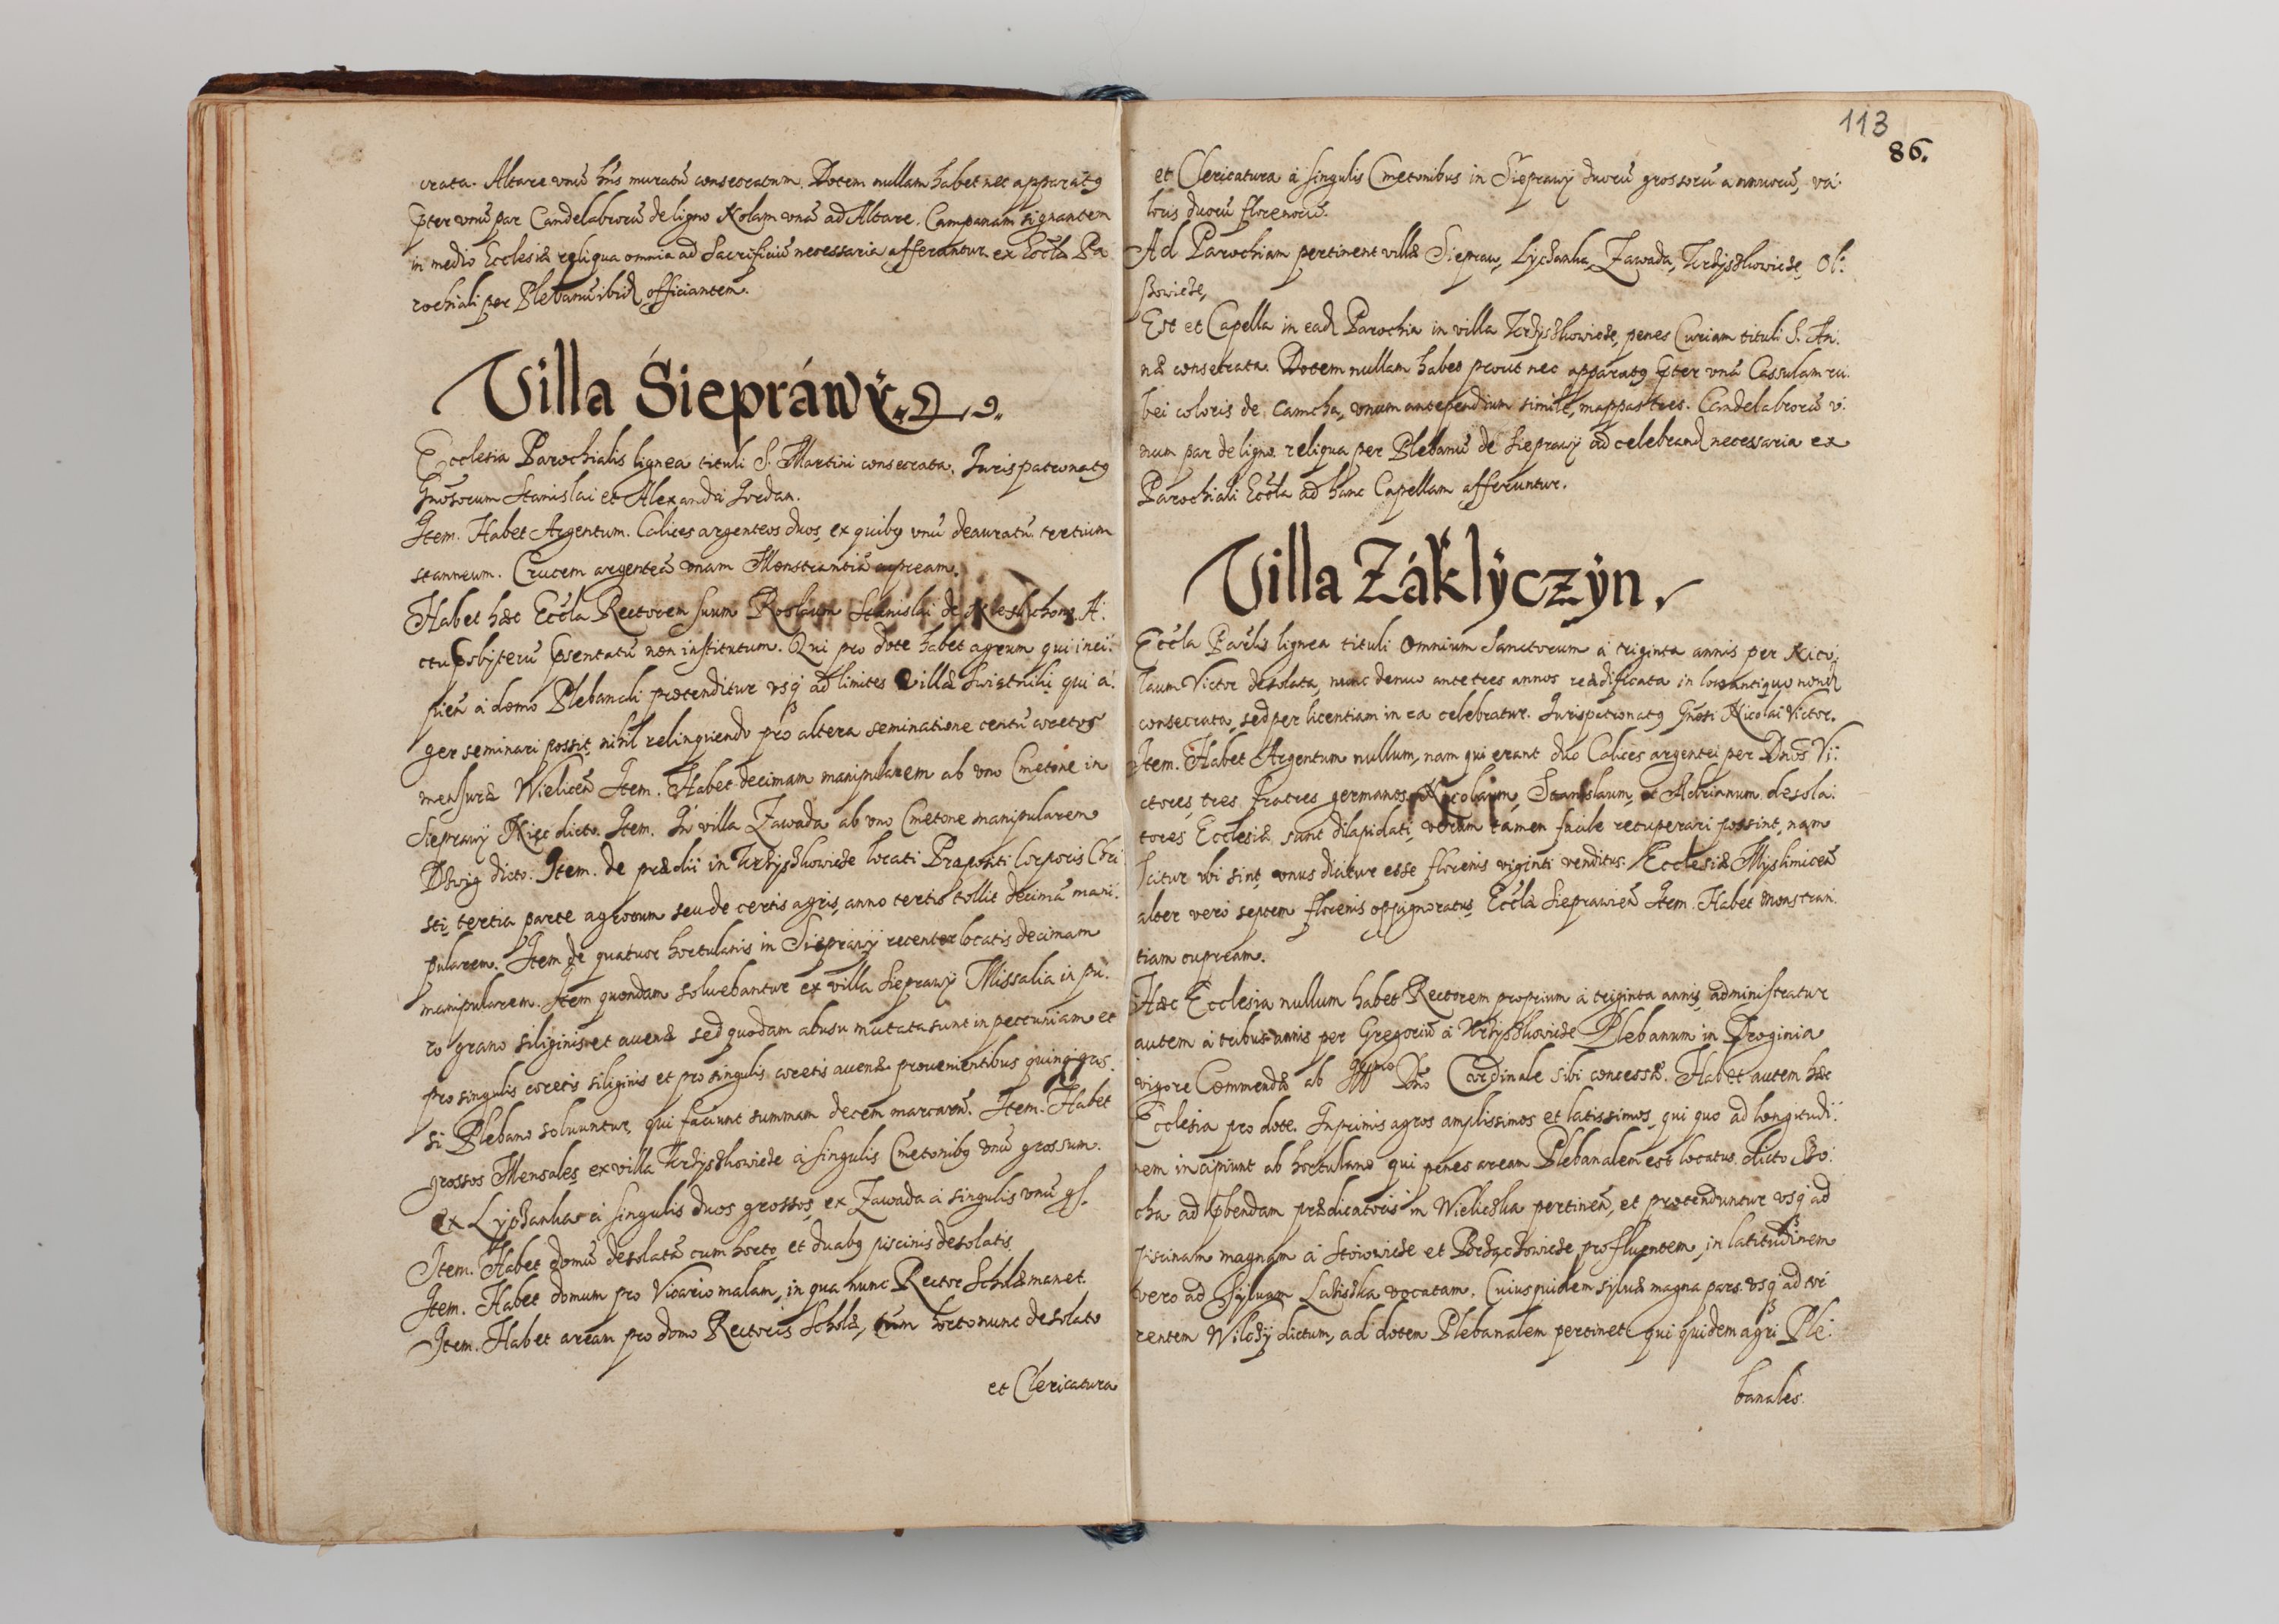 crata. Altare vnũ hñs muratũ consecratum. Dotem nullam habet nec apparatꝯ
p̃ter vnũ par Candelabrorũ de ligno Nolam vnã ad Altare. Campanam signantem
in medio Ecclesiæ reliqua omnia ad Sacrificiũ necessaria afferuntur ex Eccl̃a Pa
rochiali per Plebanũ ibid officiantem.
Villa Siepráwÿ
Ecclesia Parochialis lignea tituli S. Martini consecrata. Iuris patronatꝯ
Gnõsorum Stanislai et Alexandri Iordan.
Item. Habet Argentum. Calices argenteos duos, ex quibꝯ vnũ deauratũ tertium
stanneum. Crucem argenteã vnam Monstrantiã cupream.
Habet hæc Eccl̃a Rectorem suum Stanislai de A:
ctu p̃sbyterũ p̃sentatũ non institutum. Qui pro dote habet agrum qui inci:
pieñ a domo Plebanali protenditur vsq̃ ad limites villæ Swiątniki qui a:
ger seminari possit nihil relinquendo pro altera seminatione centũ coretos
mensuræ Wielicen̄ Item. Habet decimam manipularem ab vno Cmetone in
Sieprawÿ Kięc dicto. Item. In villa Zawada ab vno Cmetone manipularem
Dzwig dicto. Item. de prædii in Krzÿszkowicze locati Præpositi Corporis Chri
sti, tertia parte agrorum seu de certis agris, anno tertio tollit decimã mani:
pularem. Item de quatuor hortulanis in Sieprawÿ recenter locatis decimam
manipularem. Item quondam soluebantur ex villa Sieprawÿ Missalia in pu:
ro grano siliginis et auenæ sed quodam abusu mutata sunt in pecuniam et
pro singulis coretis siliginis et pro singulis coretis auenæ prouenientibus quinq̃ gros:
si Plebano soluuntur, qui faciunt summam decem marcarũ. Item. Habet
grossos Mensales ex villa Krzÿszkowicze a singulis Cmetonibꝯ vnũ grossum.
Ex Lÿczanka a singulis duos grossos, ex Zawada a singulis vnũ gs.
Item. Habet domũ desolatã cum horto et duabꝯ piscinis desolatis.
Item. Habet domum pro Vicario malam, in qua nunc Rector Scholæ manet.
Item. Habet aream pro domo Rectoris Scholæ, cum horto nunc desolato
et Clericatura
113
86.
et Clericatura a singulis Cmetonibus in Sieprawÿ duorũ grossorũ annuorũ, va:
loris duorũ florenorũ.
Ad Parochiam pertinent villæ Siepraw, Lÿczanka, Zawada, Krzÿszkowicze, Ol:
szowicze,
Est et Capella in ead Parochia in villa Krzÿszkowicze, penes Curiam tituli S. An:
næ consecrata. Dotem nullam habet prout nec apparatꝯ p̃ter vnã Cassulam ru:
bei coloris de Camcha, vnum antependium simile, mappas tres. Candelabrorũ v:
num par de ligno reliqua per Plebanũ de Sieprawÿ ad celebrand necessaria ex
Parochiali Eccl̃a ad hanc Capellam afferuntur.
Villa Zákłÿczÿn
Eccl̃a Par̃lis lignea tituli Omnium Sanctorum a triginta annis per Nico:
laum Victor desolata, nunc denuo ante tres annos reædificata in loco antiquo nond
consecrata, sed per licentiam in ea celebratur. Iurispatronatꝯ Gnõsi Nicolai Victor.
Item. Habet Argentum nullum, nam qui erant duo Calices argentei per Dnõs Vi:
ctores, tres fratres germanos Nicolaum, Stanislaum, et Adrianum desola:
tores Ecclesiæ sunt dilapidati, verum tamen facile recuperari possint, nam
scitur vbi sint, vnus dicitur esse florenis viginti venditus Ecclesiæ Myslimiceñ
alter vero septem florenis oppignoratus Eccl̃æ Siepravieñ Item. Habet Monstran:
tiam cupream.
Hæc Ecclesia nullum habet Rectorem proprium a triginta annis, administratur
autem a tribus annis per Gregoriũ a Krzÿszkowicze Plebanum in Droginia
vigore Commendæ ab Dnõ Cardinale sibi concessæ. Habet autem hæc
Ecclesia pro dote. Inprimis agros amplissimos et latissimos, qui quo ad longitudi:
nem incipiunt ab hortulano qui penes aream Plebanalem est locatus dicto Bo:
cha ad p̃bendam prædicatoris in Wieliczka pertineñ, et protenduntur vsq̃ ad
piscinam magnam a Stoiowicze et Borzęczowicze profluentem, in latitudinem
vero ad syluam vocatam. Cuiusquidem syluæ magna pars vsq̃ ad tor
rentem Wilczÿ dictum, ad dotem Plebanalem pertinet qui quidem agri Ple:
banales